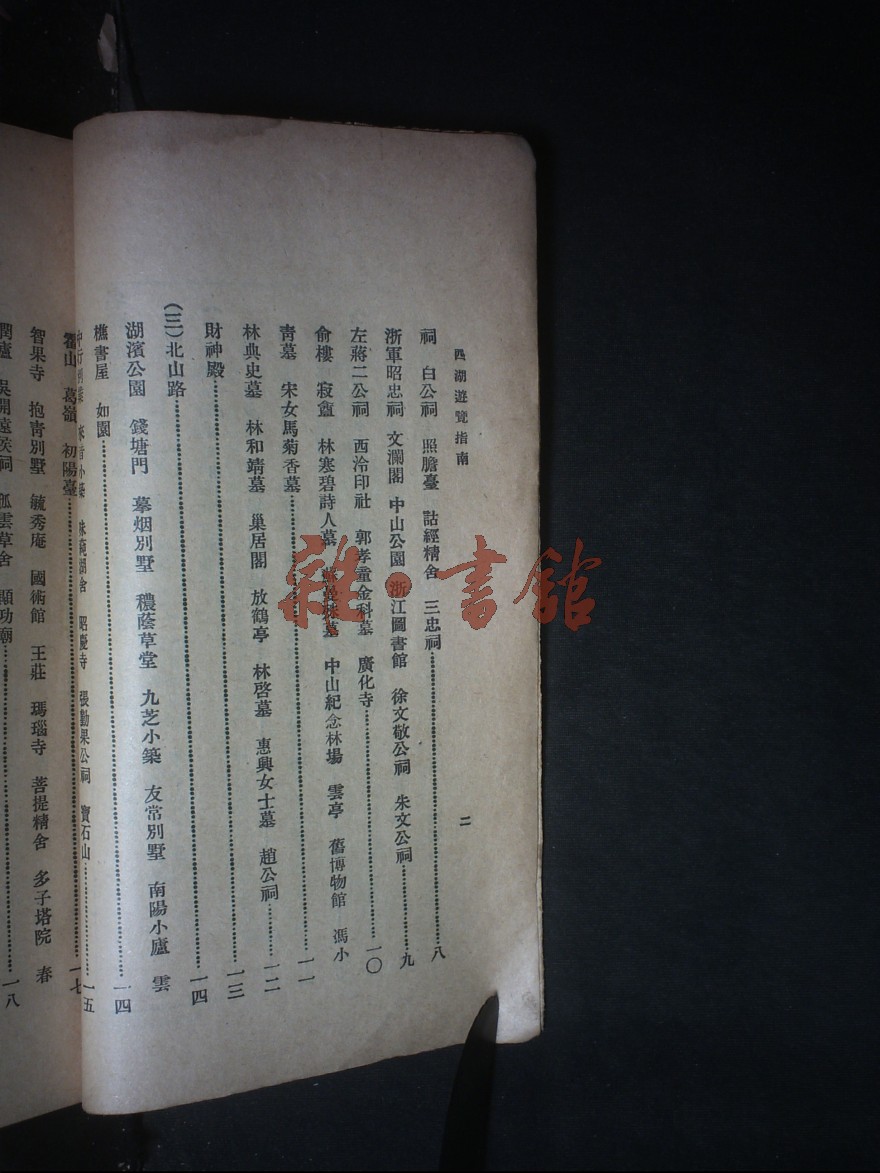 西湖遊覽指南
二
祠 白公祠 照膽臺 詁經精舍 三忠祠……八
浙軍昭忠祠 文瀾閣 中山公園 浙江圖書館 徐文敬公祠 朱文公祠……九
左蔣二公祠 西泠印社 郭孝童金科墓 廣化寺……一〇
俞樓 寂盦 林寒碧詩人墓 蘇曼殊墓 中山紀念林場 雲亭 舊博物館 馮小
靑墓 宋女馬菊香墓……一一
林典史墓 林和靖墓 巢居閣 放鶴亭 林啓墓 惠興女士墓 趙公祠……一二
財神殿……一三
(三)北山路……一四
湖濱公園 錢塘門 摹烟別墅 穠蔭草堂 九芝小築 友常別墅 南陽小廬 雲
樵書屋 如園……一四
昭慶寺 張勤果公祠 寶石山……一五
霍山 葛嶺 初陽臺……一七
智果寺 抱靑別墅 毓秀庵 國術館 王莊 瑪瑙寺 菩提精舍 多子塔院 春
潤廬 吳開遠侯祠 孤雲草舍 顯功廟……一八
雜·書館